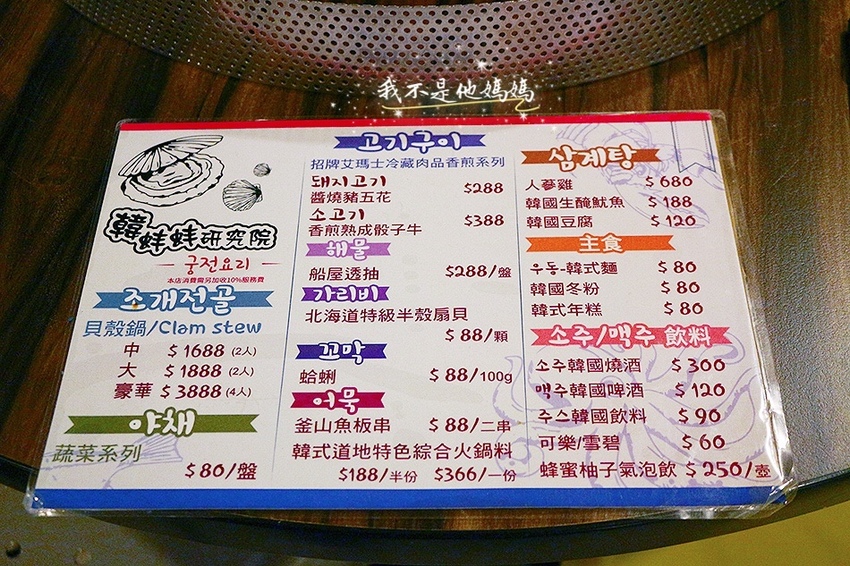 我不是他媽媽
韓蚌蚌研究院
궁전요리
本店消費需另加收10%服務費
조개전골
貝殼鍋/Clam stew
中 $1688 (2人)
大 $1888 (2人)
豪華 $3888 (4人)
야채
蔬菜系列
$80/盤
고기구이
招牌艾瑪士冷藏肉品香煎系列
돼지고기
醬燒豬五花 $288
소고기
香煎熟成骰子牛 $388
해물
船屋透抽 $288/盤
가리비
北海道特級半殼扇貝
$88/顆
꼬막
蛤蜊 $88/100g
어묵
釜山魚板串 $88/二串
韓式道地特色綜合火鍋料
$188/半份 $366/一份
삼계탕
人蔘雞 $680
韓國生醃魷魚 $188
韓國豆腐 $120
主食
우동-韓式麵 $80
韓國冬粉 $80
韓式年糕 $80
소주/맥주 飲料
소주韓國燒酒 $300
맥주韓國啤酒 $120
주스韓國飲料 $90
可樂/雪碧 $60
蜂蜜柚子氣泡飲 $250/壺